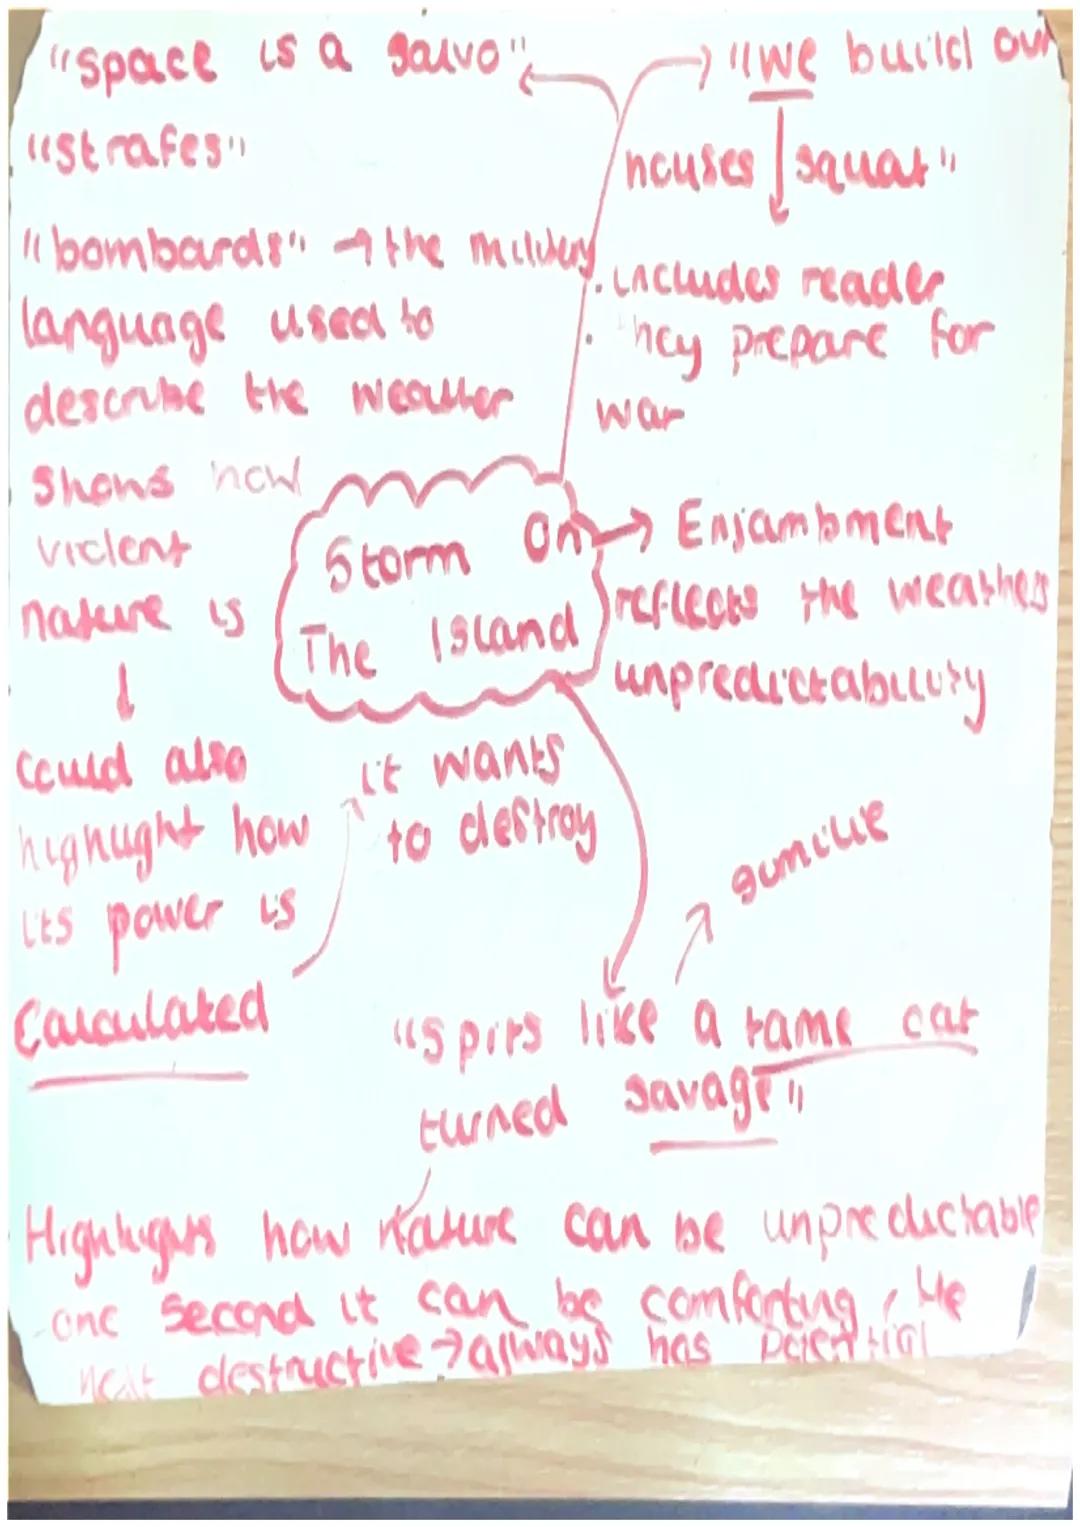 "space is a salvo"
"strafes"
"bombards" → the military
language used to
describe the weather
shows how
violent
nature is
↓
could also
highlight how
its power is
calculated
it wants
to destroy
"we build our
houses squat"
. includes reader
. they prepare for
war
Storm On
The Island
→ Enjambment
reflects the weathers
unpredictability
simile
"spits like a tame cat
turned savage"
Highlights how nature can be unpredictable
one second it can be comforting, the
next destructive → always has potential